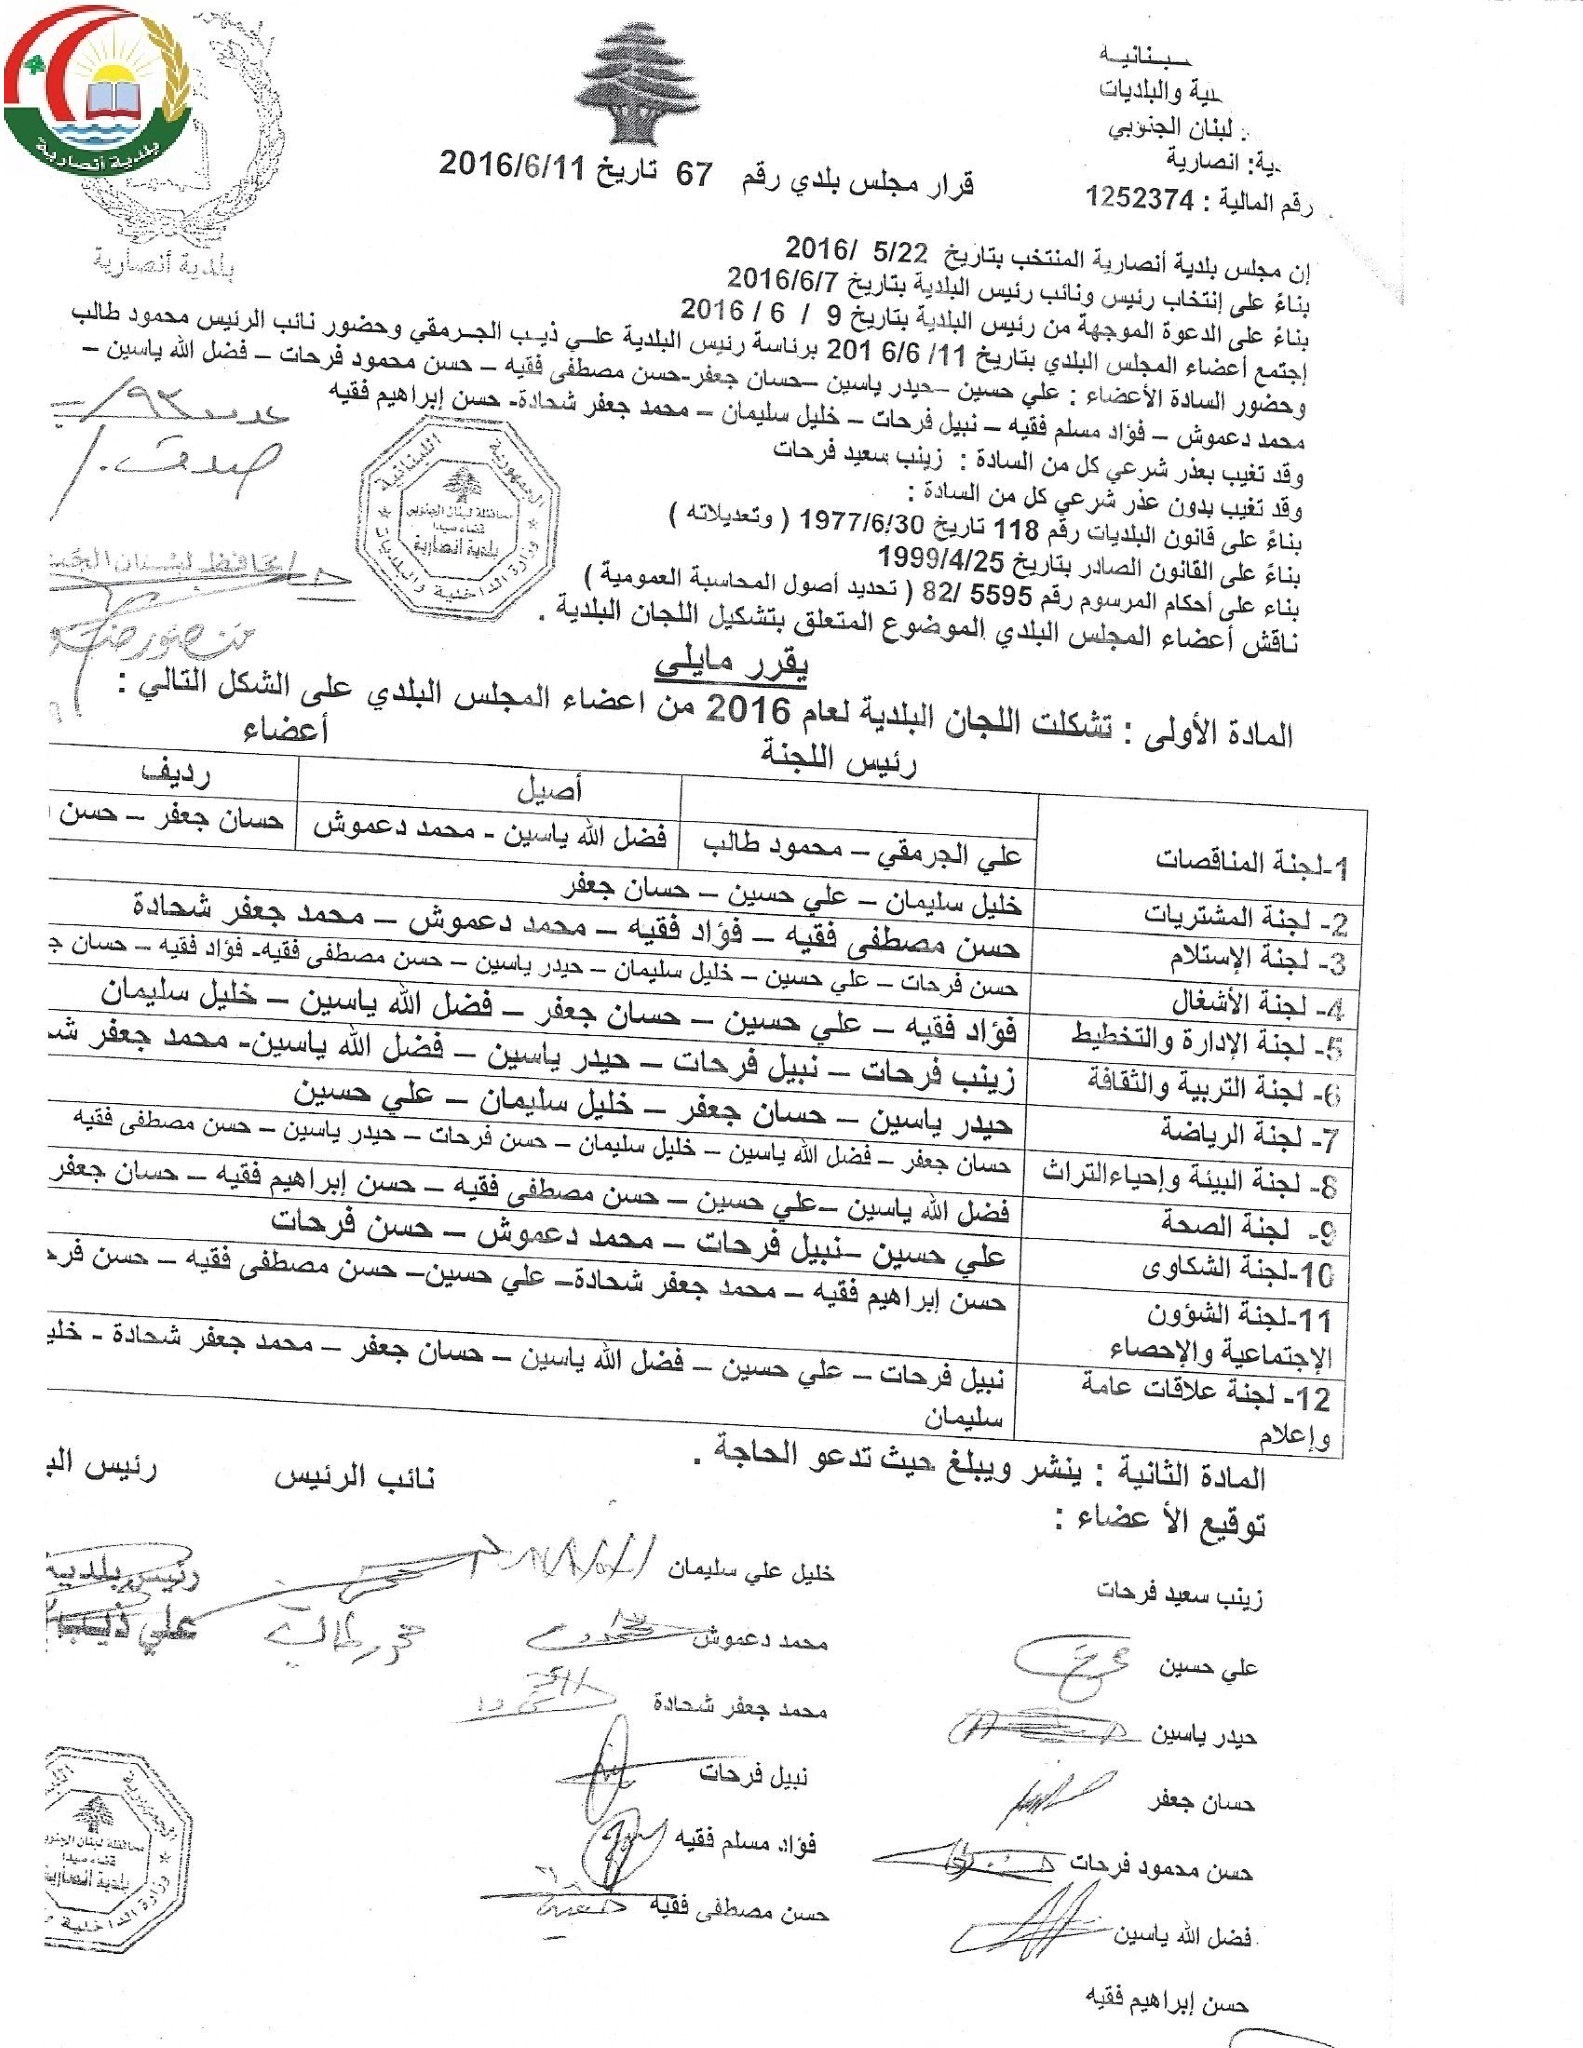 ـبـنانيـه
ـية والبلديات
: لبنان الجنوبي
ـدية: انصارية
رقم المالية : 1252374
بلدية أنصارية
بلدية أنصارية
قرار مجلس بلدي رقم 67 تاريخ 2016/6/11
إن مجلس بلدية أنصارية المنتخب بتاريخ 5/22 /2016
بناءً على إنتخاب رئيس ونائب رئيس البلدية بتاريخ 2016/6/7
بناءً على الدعوة الموجهة من رئيس البلدية بتاريخ 9 / 6 / 2016
إجتمع أعضاء المجلس البلدي بتاريخ 11/ 6/6 201 برئاسة رئيس البلدية علـي ذيـب الجـرمقي وحضور نائب الرئيس محمود طالب
وحضور السادة الأعضاء : علي حسين –حيدر ياسين –حسان جعفر-حسن مصطفى فقيه – حسن محمود فرحات – فضل الله ياسين –
محمد دعموش – فؤاد مسلم فقيه – نبيل فرحات – خليل سليمان – محمد جعفر شحادة- حسن إبراهيم فقيه
وقد تغيب بعذر شرعي كل من السادة : زينب سعيد فرحات
وقد تغيب بدون عذر شرعي كل من السادة :
بناءً على قانون البلديات رقم 118 تاريخ 1977/6/30 ( وتعديلاته )
بناءً على القانون الصادر بتاريخ 1999/4/25
بناء على أحكام المرسوم رقم 5595 /82 ( تحديد أصول المحاسبة العمومية )
ناقش أعضاء المجلس البلدي الموضوع المتعلق بتشكيل اللجان البلدية .
صدق
محافظ لبنان الجنـ
منصور ضو
الجمهورية اللبنانية
وزارة الداخلية والبلديات
محافظة لبنان الجنوبي
قضاء صيدا
بلدية أنصارية
يقرر مايلي
المادة الأولى : تشكلت اللجان البلدية لعام 2016 من اعضاء المجلس البلدي على الشكل التالي :
رئيس اللجنة أعضاء
أصيل رديف
1-لجنة المناقصات علي الجرمقي – محمود طالب فضل الله ياسين - محمد دعموش حسان جعفر – حسن
2- لجنة المشتريات خليل سليمان – علي حسين – حسان جعفر
3- لجنة الإستلام حسن مصطفى فقيه – فؤاد فقيه – محمد دعموش – محمد جعفر شحادة
4- لجنة الأشغال حسن فرحات – علي حسين – خليل سليمان – حيدر ياسين – حسن مصطفى فقيه- فؤاد فقيه – حسان جـ
5- لجنة الإدارة والتخطيط فؤاد فقيه – علي حسين – حسان جعفر – فضل الله ياسين – خليل سليمان
6- لجنة التربية والثقافة زينب فرحات – نبيل فرحات – حيدر ياسين – فضل الله ياسين- محمد جعفر شحـ
7- لجنة الرياضة حيدر ياسين – حسان جعفر – خليل سليمان – علي حسين
8- لجنة البيئة وإحياءالتراث حسان جعفر – فضل الله ياسين – خليل سليمان – حسن فرحات – حيدر ياسين – حسن مصطفى فقيه
9- لجنة الصحة فضل الله ياسين –علي حسين – حسن مصطفى فقيه – حسن إبراهيم فقيه – حسان جعفر
10-لجنة الشكاوى علي حسين –نبيل فرحات – محمد دعموش – حسن فرحات
11-لجنة الشؤون حسن إبراهيم فقيه – محمد جعفر شحادة– علي حسين– حسن مصطفى فقيه – حسن فرحـ
الإجتماعية والإحصاء
12- لجنة علاقات عامة نبيل فرحات – علي حسين – فضل الله ياسين – حسان جعفر – محمد جعفر شحادة - خليـ
وإعلام سليمان
المادة الثانية : ينشر ويبلغ حيث تدعو الحاجة .
نائب الرئيس رئيس البـ
توقيع الأ عضاء :
زينب سعيد فرحات خليل علي سليمان
رئيس بلدية
علي ذيب
محمود طالب
علي حسين محمد دعموش
حيدر ياسين محمد جعفر شحادة
حسان جعفر نبيل فرحات
حسن محمود فرحات فؤاد مسلم فقيه
فضل الله ياسين حسن مصطفى فقيه
حسن إبراهيم فقيه
الجمهورية اللـ
محافظة لبنان الجنوبي
قضاء صيدا
بلدية أنصارية
وزارة الداخلية و